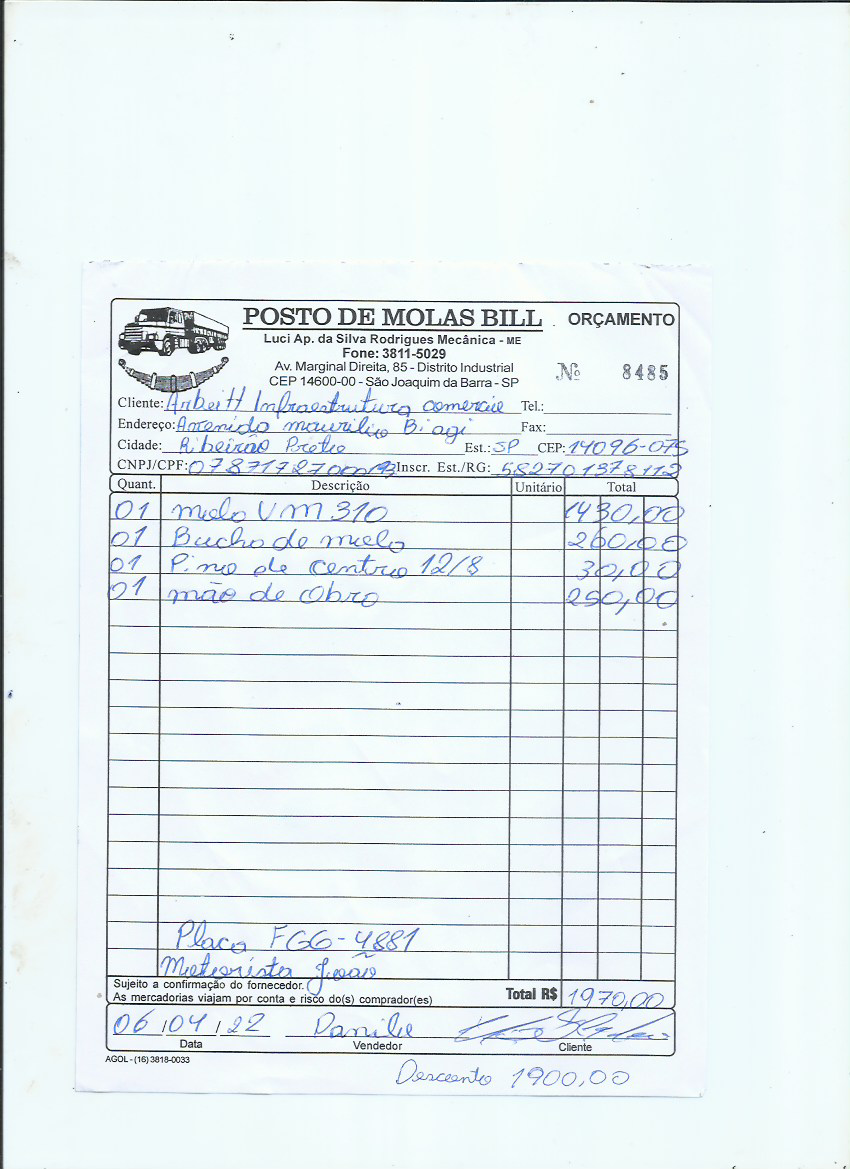 POSTO DE MOLAS BILL ORÇAMENTO
Luci Ap. da Silva Rodrigues Mecânica - ME
Fone: 3811-5029
Av. Marginal Direita, 85 - Distrito Industrial
CEP 14600-00 - São Joaquim da Barra - SP
Nº 8485
Cliente: Infraestrutura comercie Tel.:
Endereço: Avenida maurilio Biagi Fax:
Cidade: Ribeirão Preto Est.: SP CEP: 14096-075
CNPJ/CPF: Inscr. Est./RG: 582701378112
Quant. Descrição Unitário Total
01 mola VM 310 1430,00
01 Bucha de mola 260,00
01 Pino de centro 12/8 30,00
01 mão de obra 250,00
Placa FGG-4881
Motorista João
Sujeito a confirmação do fornecedor.
As mercadorias viajam por conta e risco do(s) comprador(es)
Total R$ 1970,00
06/04/22 Danilo
Data Vendedor Cliente
AGOL - (16) 3818-0033
Desconto 1900,00